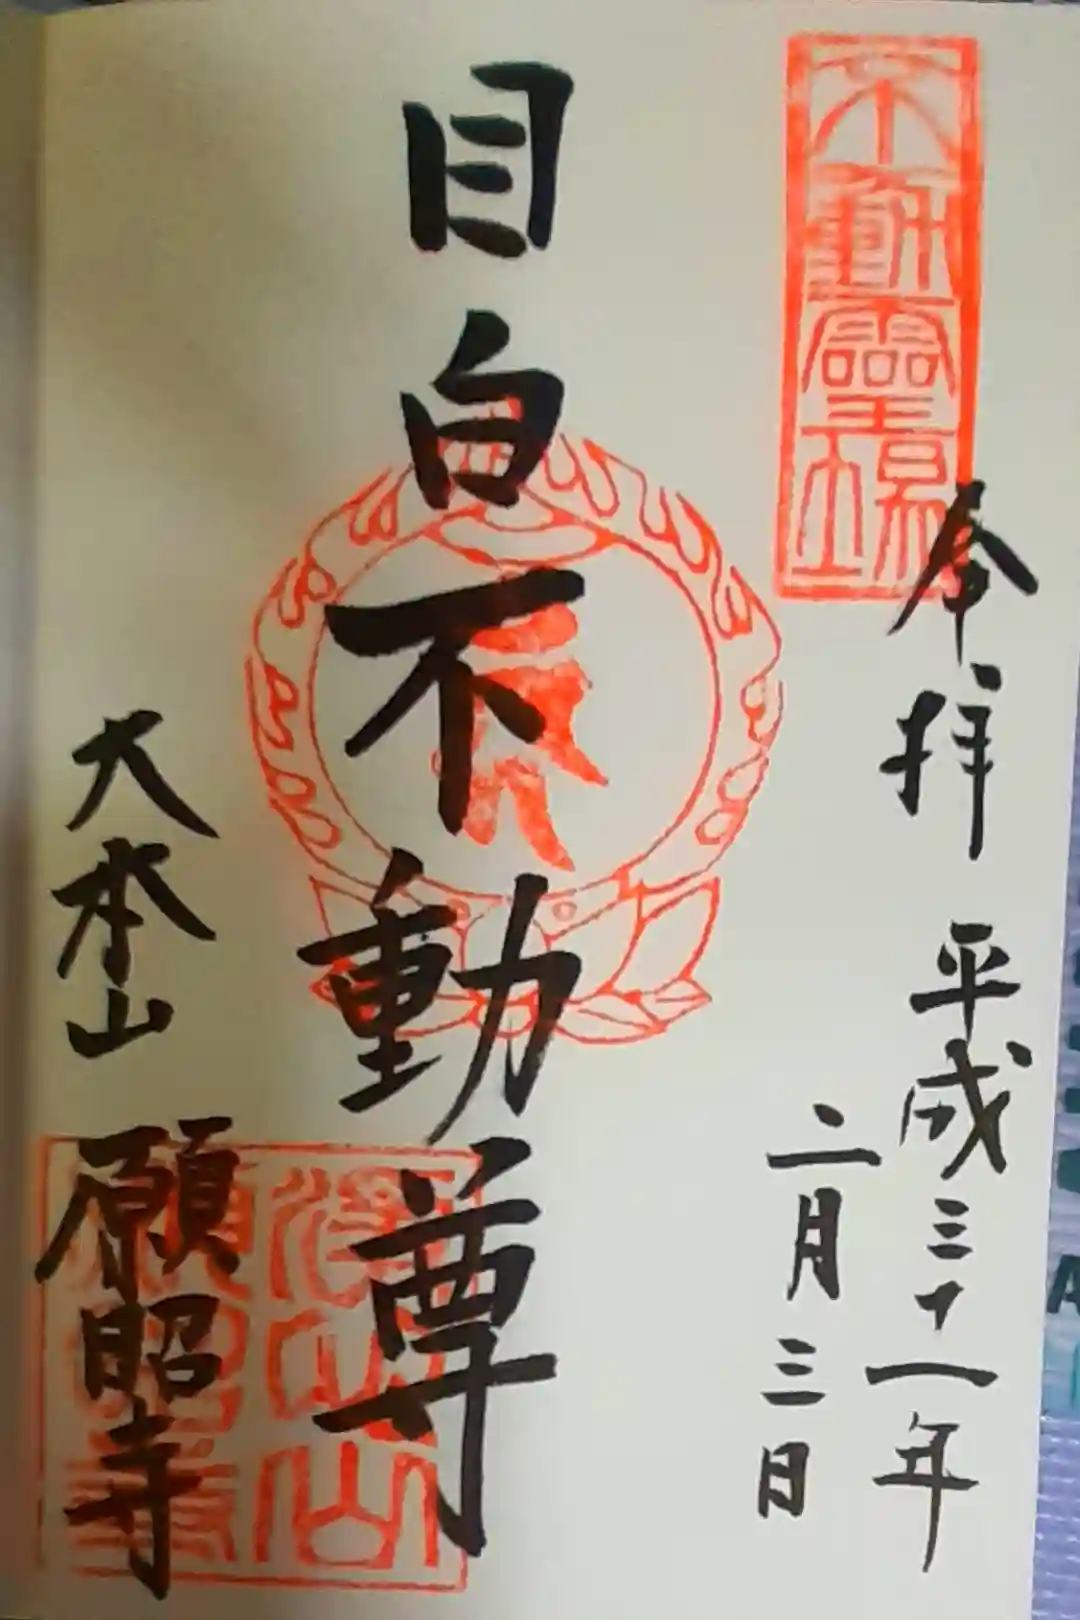 不動靈場
奉拝 平成三十一年
二月三日
目白不動尊
大本山 願昭寺